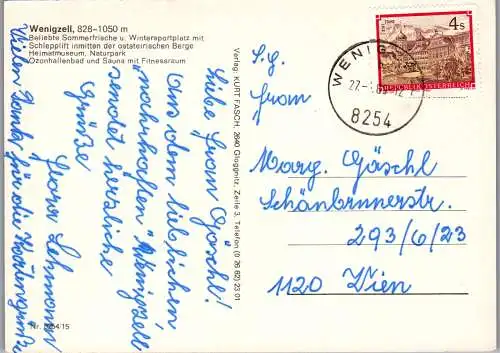 Wenigzell, 828-1050 m
Beliebte Sommerfrische u. Wintersportplatz mit
Schlepplift inmitten der oststeirischen Berge
Heimatmuseum, Naturpark
Ozonhallenbad und Sauna mit Fitnessraum
Liebe Frau Göschl!
Aus dem lieblichen
"nahrhaften" Wenigzell
sendet herzliche
Grüße
Flora Lehmann
Vielen Dank für die Kartengrüße
Nr. 8254/15
Verlag: KURT FASCH, 2640 Gloggnitz, Zeile 3, Telefon (0 26 62) 23 01
S.g.
Frau
Marg. Göschl
Schönbrunnerstr.
293/6/23
1120 Wien
4s
REPUBLIK ÖSTERREICH
WENIG
8254